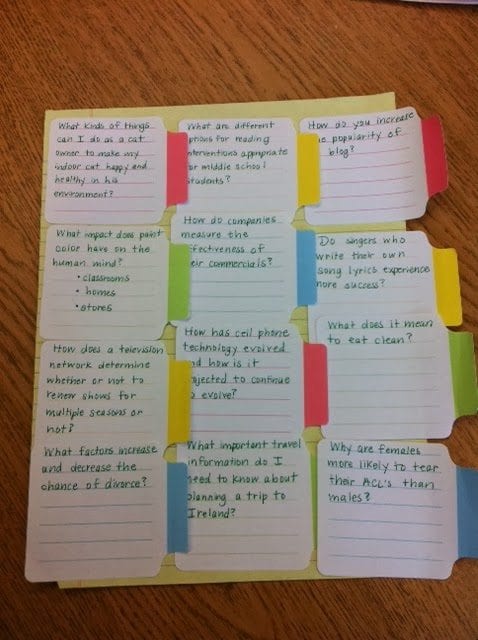 What kinds of things
can I do as a cat
owner to make my
indoor cat happy and
healthy in his
environment?
What are different
options for reading
interventions appropriate
for middle school
students?
How do you increase
the popularity of
blog?
What impact does paint
color have on the
human mind?
• classrooms
• homes
• stores
How do companies
measure the
effectiveness of
their commercials?
Do singers who
write their own
song lyrics experience
more success?
How does a television
network determine
whether or not to
renew shows for
multiple seasons or
not?
How has cell phone
technology evolved
and how is it
projected to continue
to evolve?
What does it mean
to eat clean?
What factors increase
and decrease the
chance of divorce?
What important travel
information do I
need to know about
planning a trip to
Ireland?
Why are females
more likely to tear
their ACL's than
males?